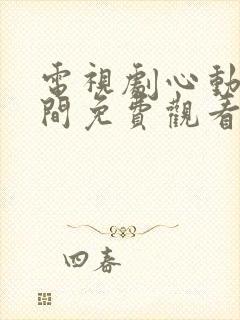 電視劇心動
間免費觀看
四春